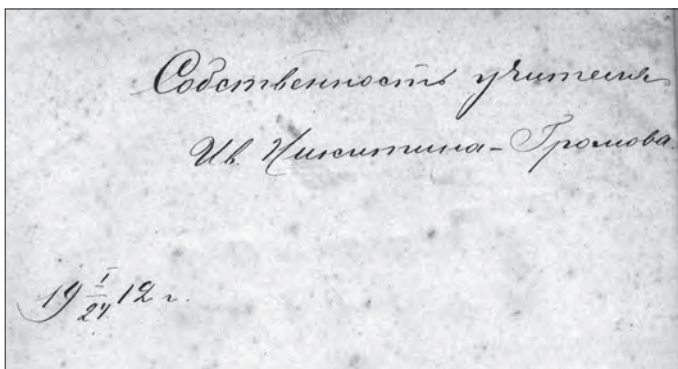 Собственность учителя
Ив. Никитина-Громова.
19 I/24 12 г.